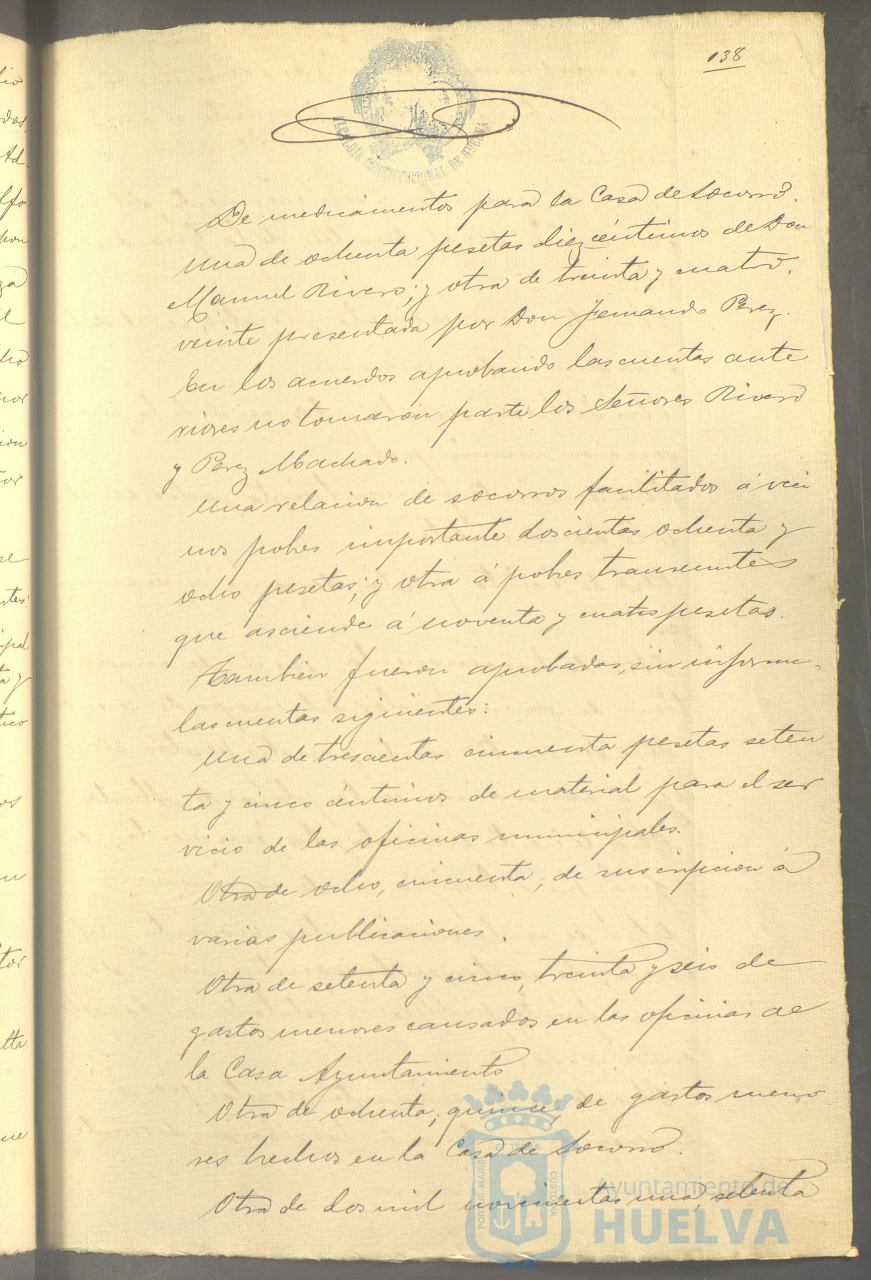 138
ALCALDIA CONSTITUCIONAL DE HUELVA
De medicamentos para la Casa de Socorro.
Una de ochenta pesetas diez céntimos de Don
Manuel Rivero; y otra de treinta y cuatro,
veinte presentada por Don Fernando Perez.
En los acuerdos aprobando las cuentas ante
riores no tomaron parte los Señores Rivero
y Perez Machado.
Una relacion de socorros facilitados á veci
nos pobres importante doscientas ochenta y
ocho pesetas; y otra á pobres transeuntes
que asciende á noventa y cuatro pesetas.
Tambien fueron aprobadas, sin informe,
las cuentas siguientes:
Una de trescientas cincuenta pesetas seten
ta y cinco céntimos de material para el ser
vicio de las oficinas municipales.
Otra de ocho, cincuenta, de suscripcion á
varias publicaciones.
Otra de setenta y cinco, treinta y seis de
gastos menores causados en las oficinas de
la Casa Ayuntamiento
Otra de ochenta, quince, de gastos meno
res hechos en la Casa de Socorro.
Otra de dos mil novecientas una, setenta
PORTUS MARIS ET TERRE CUSTODIA
Ayuntamiento de
HUELVA